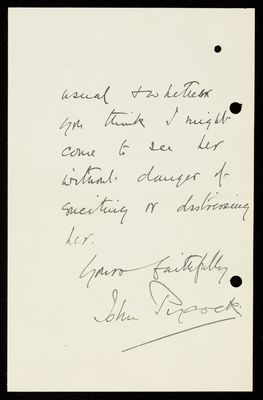 usual & whether
you think I might
come to see her
without danger of
exciting or distressing
her.
Yours faithfully
John